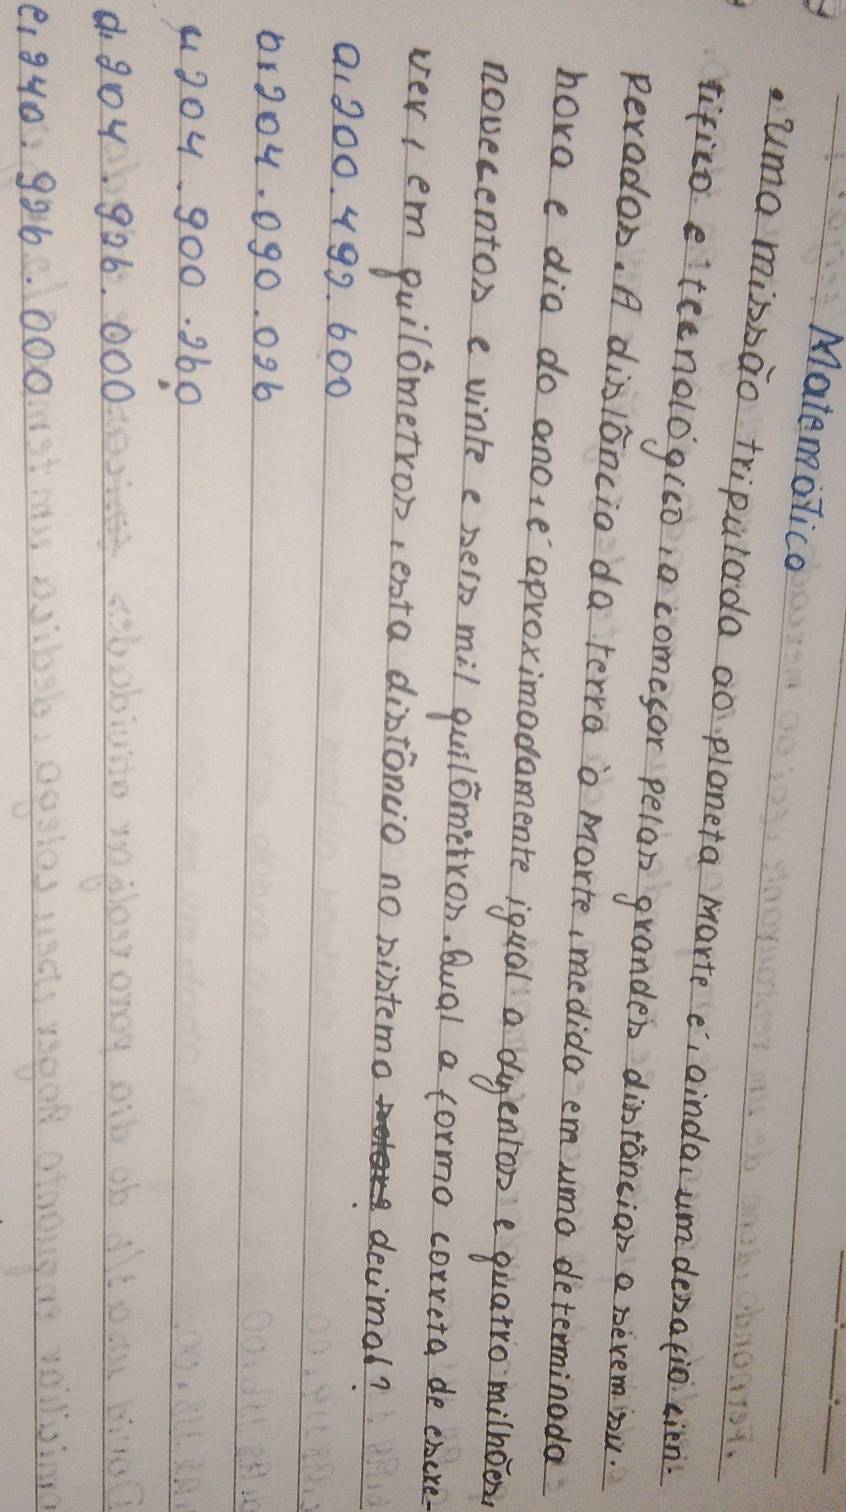 Matemática
. Uma missão tripulada ao planeta Marte é, ainda, um desafio cien-
tífico e tecnológico, a começar pelas grandes distâncias a serem su-
peradas. A distância da terra à Marte, medida em uma determinada
hora e dia do ano, é aproximadamente igual a duzentos e quatro milhões,
novecentos e vinte e seis mil quilômetros. Qual a forma correta de escre-
ver, em quilômetros, esta distância no sistema decimal?
a, 200.492.600
b, 204.090.026
c, 204.900.260
d, 204.926.000
e, 240.926.000